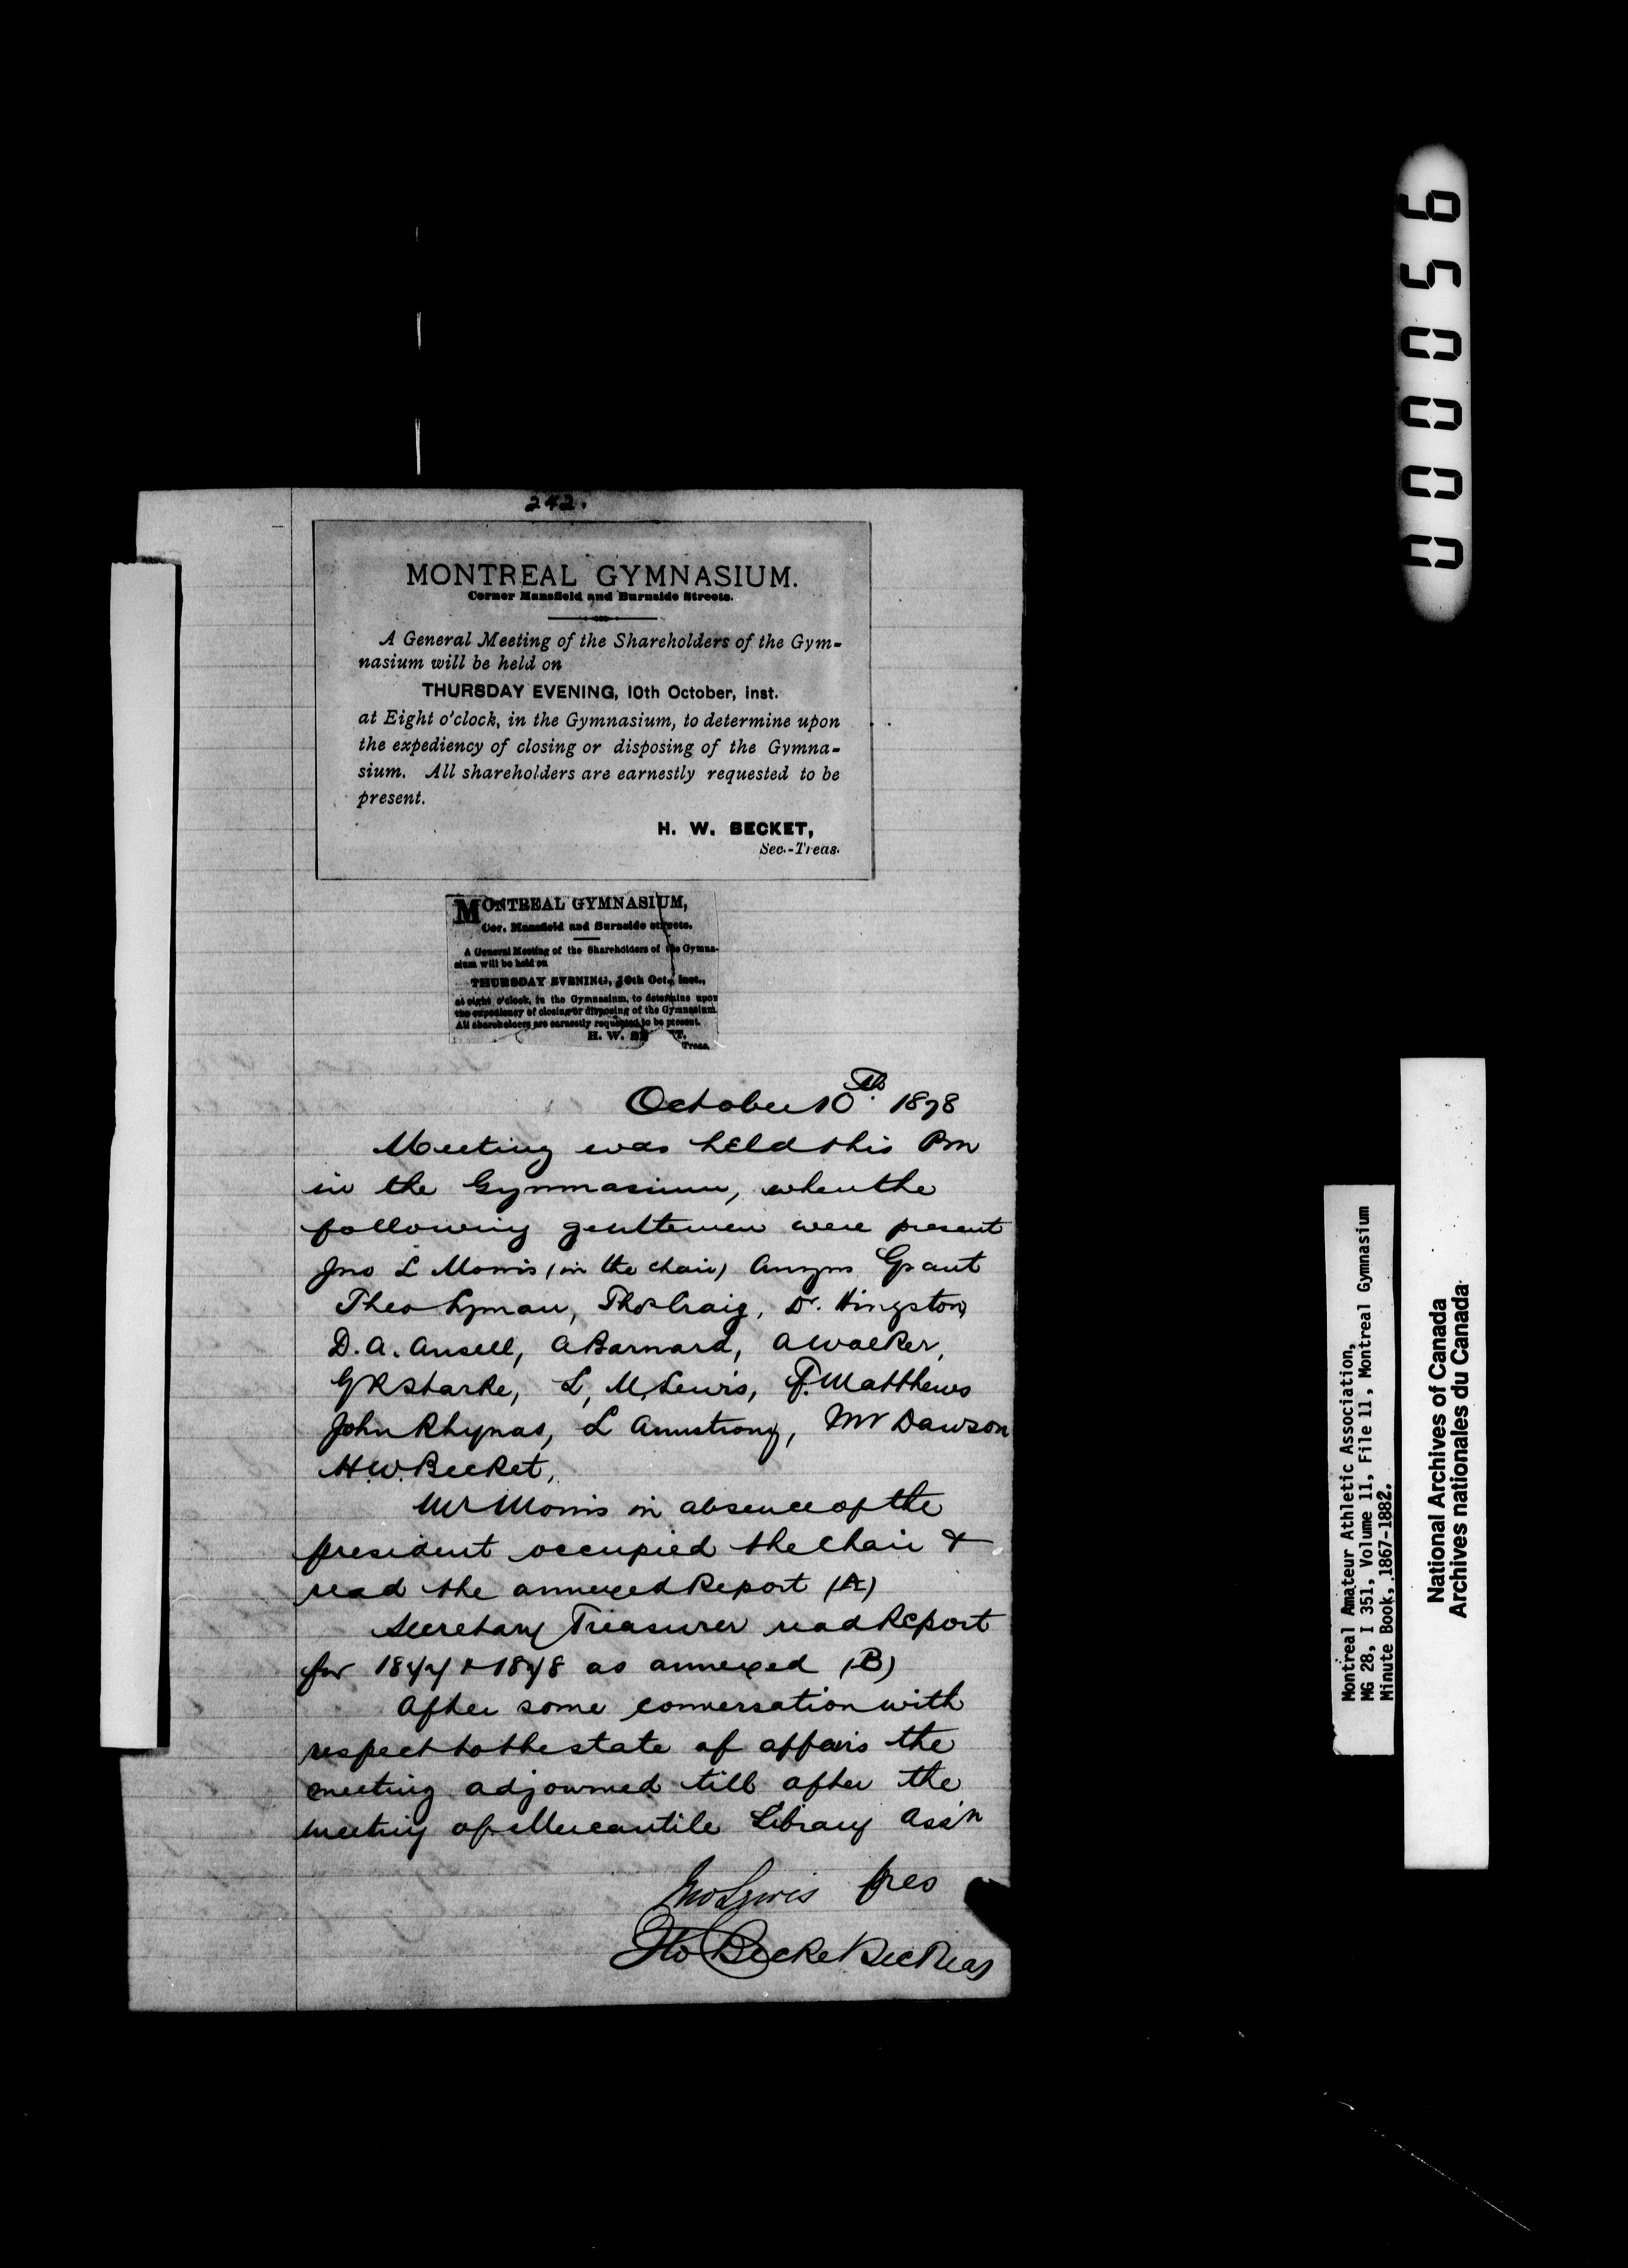 242.
MONTREAL GYMNASIUM.
Corner Mansfield and Burnside Streets.
A General Meeting of the Shareholders of the Gym-
nasium will be held on
THURSDAY EVENING, 10th October, inst.
at Eight o'clock, in the Gymnasium, to determine upon
the expediency of closing or disposing of the Gymna-
sium. All shareholders are earnestly requested to be
present.
H. W. BECKET,
Sec.-Treas.
MONTREAL GYMNASIUM,
Cor. Mansfield and Burnside streets.
A General Meeting of the Shareholders of the Gymna-
sium will be held on
THURSDAY EVENING, 10th Oct., inst.,
at eight o'clock, in the Gymnasium, to determine upon
the expediency of closing or disposing of the Gymnasium
All shareholders are earnestly requested to be present.
H. W. BE T.
Treas.
October 10th. 1878
Meeting was held this Pm
in the Gymnasium, when the
following gentlemen were present
Jno L Morris (in the chair) Angus Grant
Theo Lyman, Thos Craig, Dr. Hingston,
D. A. Ansell, A Barnard, A Walker,
G R Starke, L, M, Lewis, F. Matthews
John Rhynas, L Armstrong, Mr Dawson
H. W. Becket,
Mr Morris in absence of the
president occupied the chair &
read the annexed Report (A)
Secretary Treasurer read Report
for 1877 & 1878 as annexed (B)
After some conversation with
respect to the state of affairs the
meeting adjourned till after the
meeting of Mercantile Library Ass'n
Pres
HW Becket Sec Treas
000056
Montreal Amateur Athletic Association,
MG 28, I 351, Volume 11, File 11, Montreal Gymnasium
Minute Book, 1867-1882.
National Archives of Canada
Archives nationales du Canada